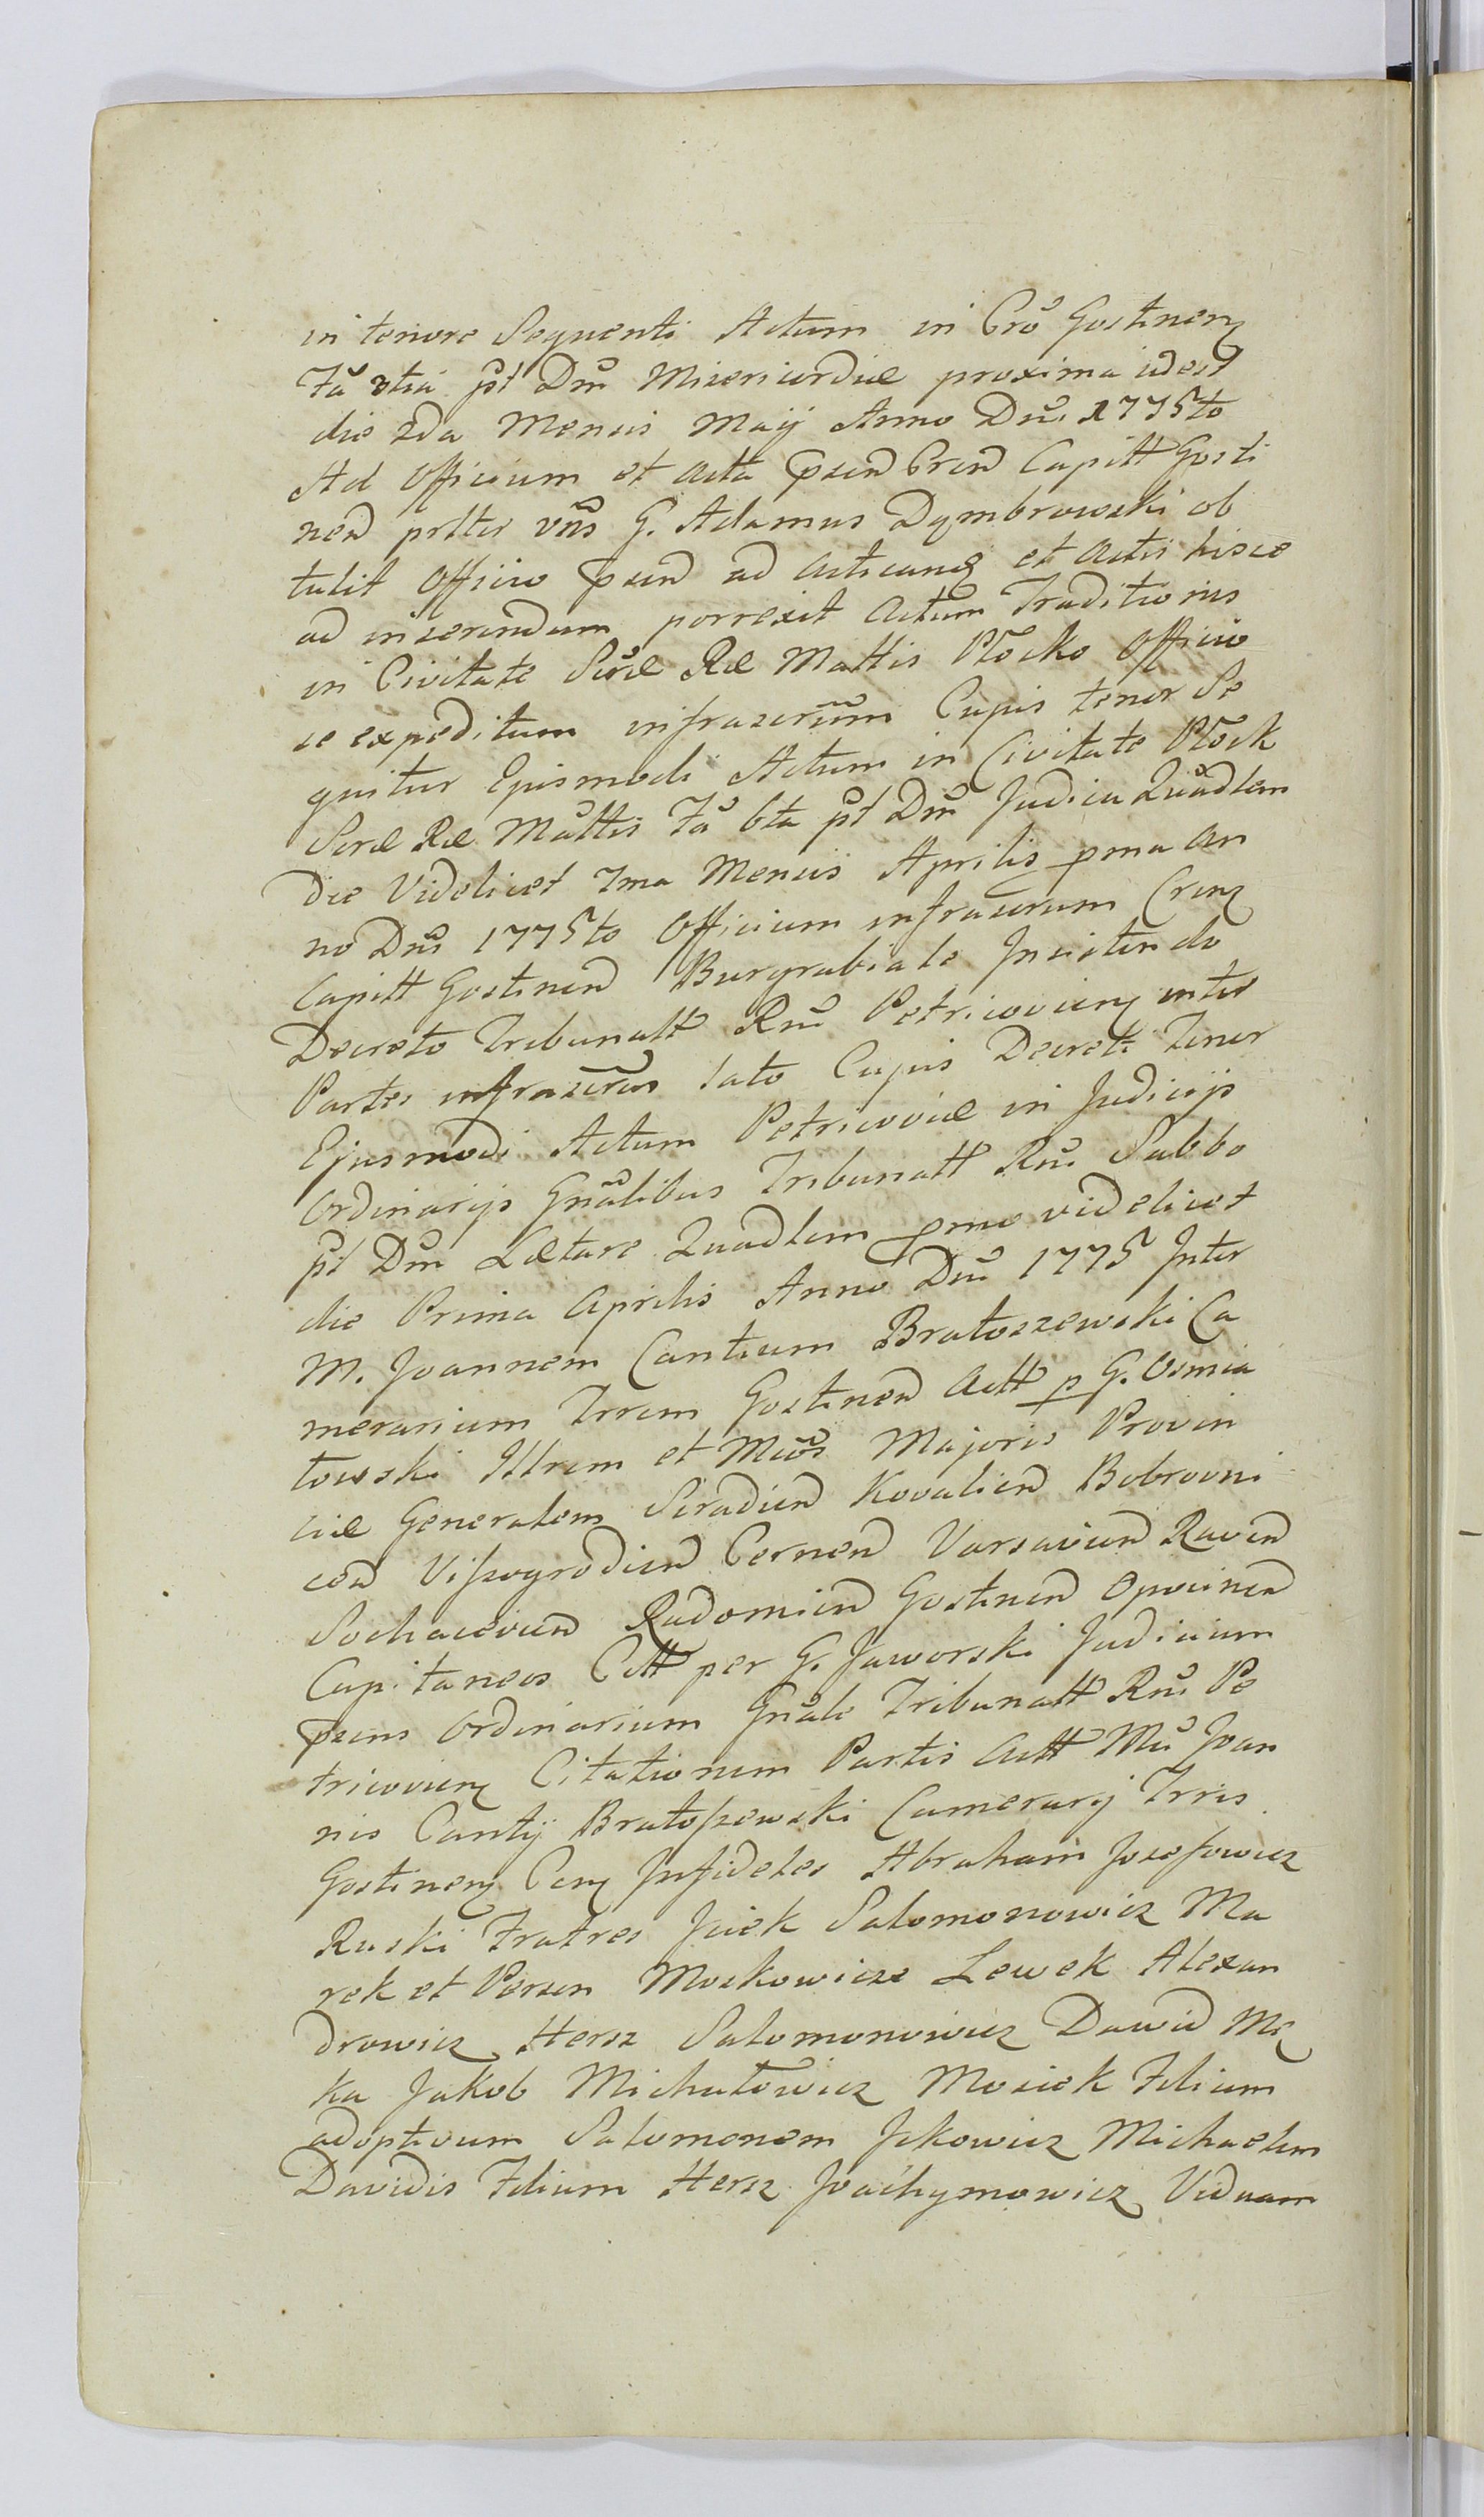 in tenore Sequenti Actum in Cro Gostinen
Fa 3tia pt Dm Misericordiæ proxima idest
die 2da Mensis Maij Anno Dni 1775to
Ad Officium et acta psen Cren Capitt Gosti
nen prltr vns G. Adamus Dymbrowski ob
tulit Officio psen ad acticand et actis hisce
ad inserendum porrexit actum Traditionis
in Civitate Seræ Ræ Mattis Płocko Officio
se expeditum infrascrum Cujus tenor Se
quitur Ejusmodi Actum in Civitate Płock
Seræ Ræ Mattis Fa 6ta pt Dm Judica Quadlem
die Videlicet 7ma Mensis Aprilis pma An
no Dni 1775to Officium infrascrum Cren
Capitt Gostinen Burgrabiale Insistendo
Decreto Tribunatt Rni Petricovien inter
Partes infrascras lato Cujus Decreti Tenor
Ejusmodi Actum Petricoviæ in Judicijs
Ordinarijs Gnalibus Tribunatt Rni Sabbo
pt Dm Lætare Quadlem pmo videlicet
die Prima Aprilis Anno Dni 1775 Inter
M. Joannem Cantium Bratoszewski Ca
merarium Trrem Gostinen Actt p G. Osmia
łowski Illrem et Mcos Majoris Provin
ciæ Generalem Siradien Kovalien Bobrovni
cen Viszogrodien Cernen Varsavien Raven
Sochacevien Radomien Gostinen Opocinen
Capitaneos Citt per G. Jaworski Judicium
psens Ordinarium Gnale Tribunatt Rni Pe
tricovien Citationem Partis Actt Mci Joan
nis Cantij Bratoszewski Camerarij Trris
Gostinen Cen Infideles Abraham Josefowicz
Ruski Fratres Jcek Salomonowicz Ma
rek et Persen Moskowicze Lewek Alexan
drowicz Hersz Salomonowicz Dawid Mę
ka Jakob Michałowicz Mosiek Filium
adoptivum Salomonem Jckowicz Michaelem
Davidis Filium Hersz Joachymowicz Viduam